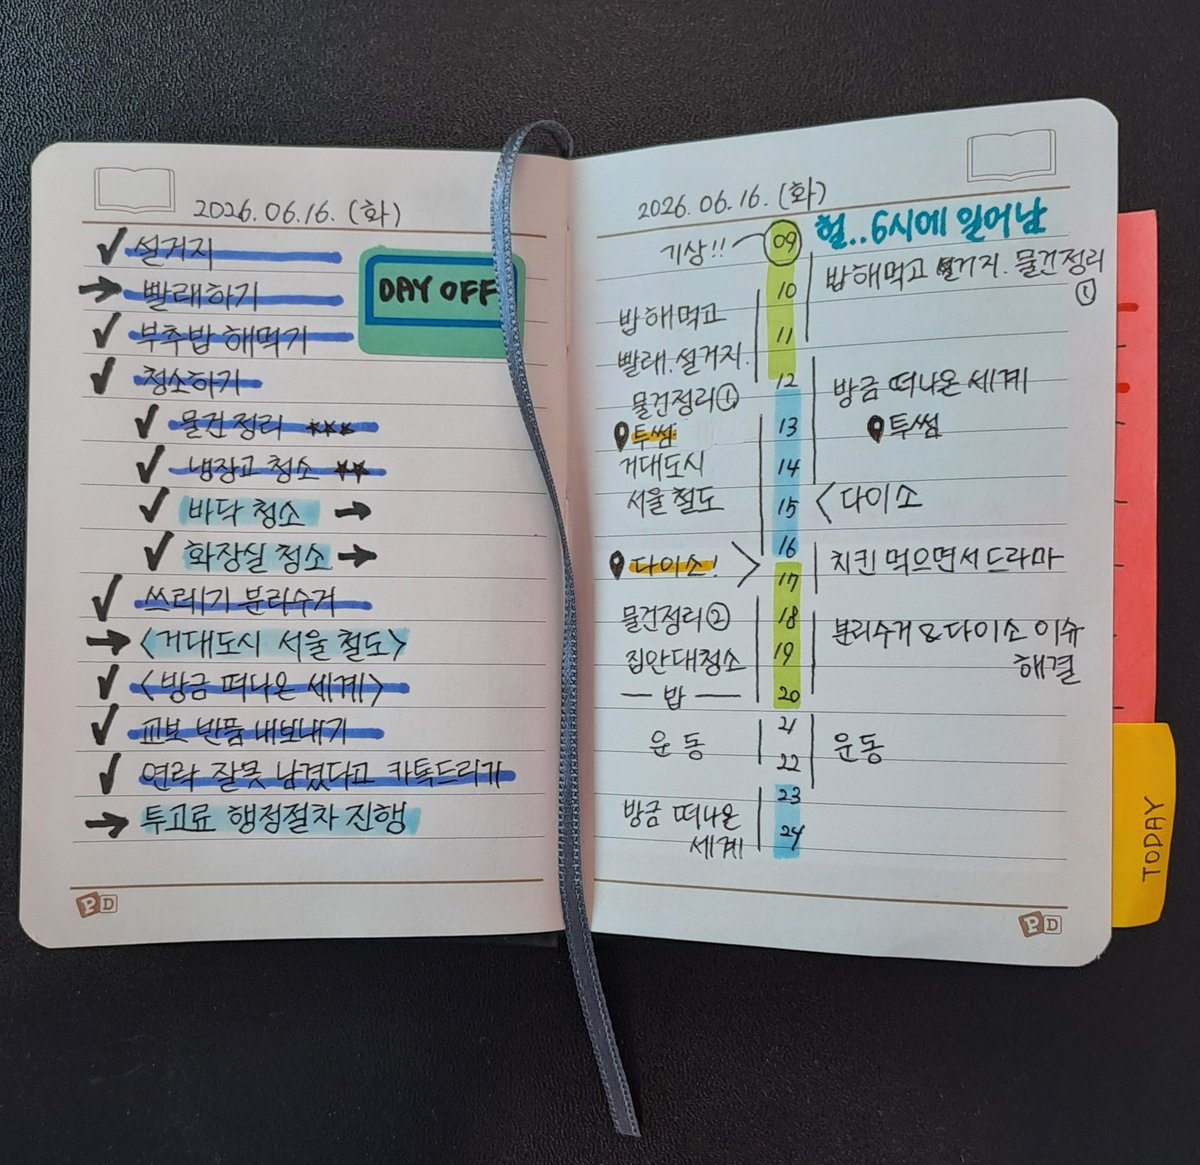 2026.06.16.(화)
✓ 설거지
→ 빨래하기
DAY OFF
✓ 부추밥 해먹기
✓ 청소하기
✓ 물건정리 ★★★
✓ 냉장고 청소 ★★
✓ 바닥 청소 →
✓ 화장실 청소 →
✓ 쓰레기 분리수거
→ <거대도시 서울 철도>
✓ <방금 떠나온 세계>
✓ 교보 반품 내보내기
✓ 연락 잘못 남겼다고 카톡드리기
→ 투고료 행정절차 진행
PD
2026.06.16.(화)
기상!!
밥해먹고
빨래.설거지.
물건정리①
투썸
거대도시
서울 철도
다이소!
물건정리②
집안대청소
밥
운동
방금 떠나온
세계
09
10
11
12
13
14
15
16
17
18
19
20
21
22
23
24
헐..6시에 일어남
밥해먹고 설거지.물건정리
①
방금 떠나온 세계
투썸
<다이소
치킨 먹으면서드라마
분리수거&다이소 이슈
해결
운동
PD
TODAY